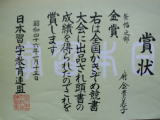 賞状
金賞
右は全国かきぞめ辞書
大会に出品され頭書の
成績を得られたのでこれを
賞します
昭和四十六年一月十五日
日本習字教育連盟